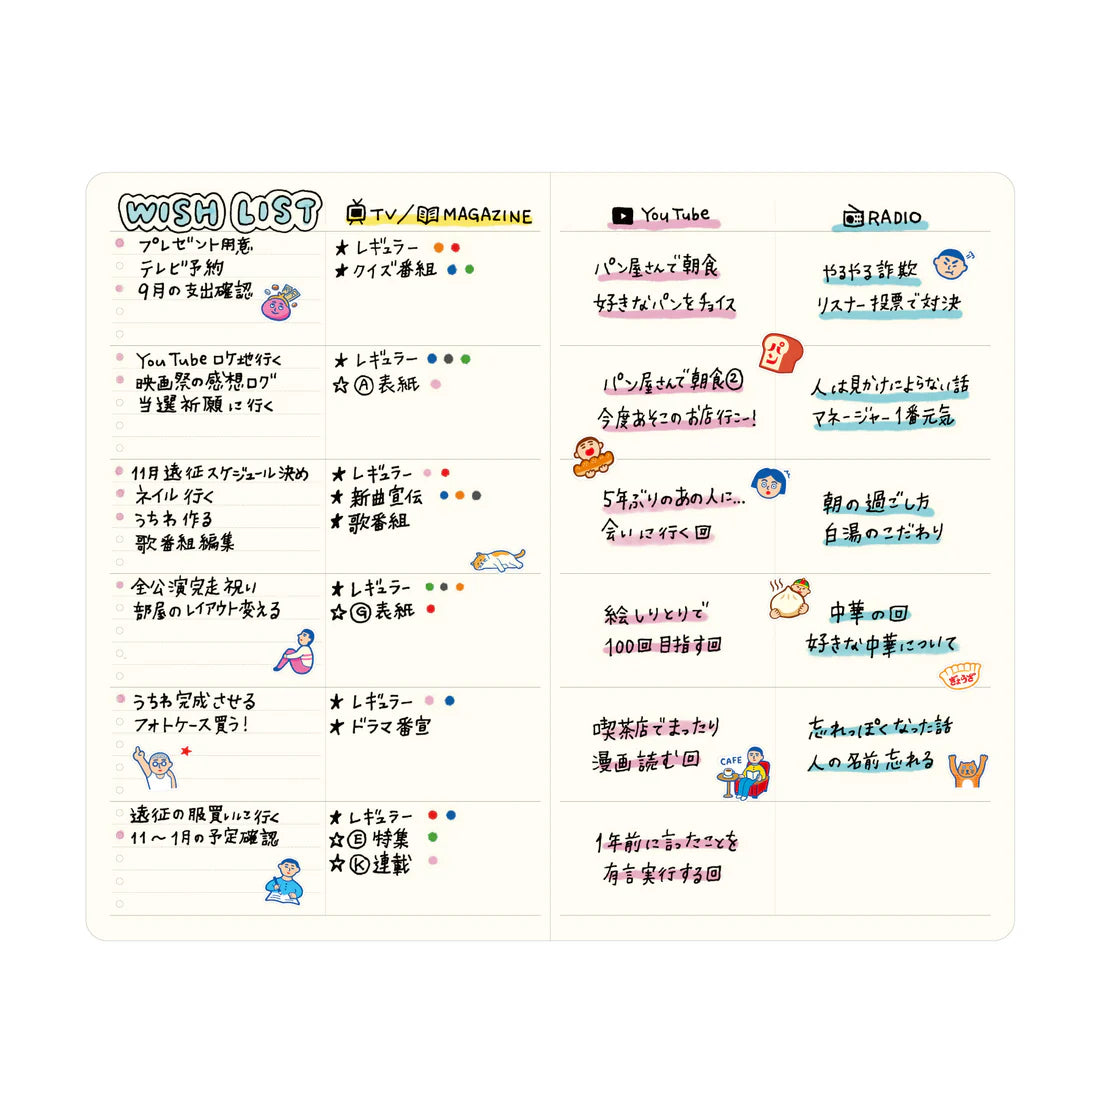 WISH LIST
プレゼント用意
テレビ予約
9月の支出確認
YouTubeロケ地行く
映画祭の感想ログ
当選祈願に行く
11月遠征スケジュール決め
ネイル行く
うちわ作る
歌番組編集
全公演完走祝い
部屋のレイアウト変える
うちわ完成させる
フォトケース買う!
遠征の服買いに行く
11〜1月の予定確認
TV/MAGAZINE
★レギュラー
★クイズ番組
★レギュラー
☆Ⓐ表紙
★レギュラー
★新曲宣伝
★歌番組
★レギュラー
☆Ⓖ表紙
★レギュラー
★ドラマ番宣
★レギュラー
☆Ⓔ特集
☆Ⓚ連載
YouTube
パン屋さんで朝食
好きなパンをチョイス
パン
パン屋さんで朝食②
今度あそこのお店行こー!
5年ぶりのあの人に...
会いに行く回
絵しりとりで
100回目指す回
喫茶店でまったり
漫画読む回
CAFE
1年前に言ったことを
有言実行する回
RADIO
やるやる詐欺
リスナー投票で対決
人は見かけによらない話
マネージャー1番元気
朝の過ごし方
白湯のこだわり
中華の回
好きな中華について
ぎょうざ
忘れっぽくなった話
人の名前忘れる